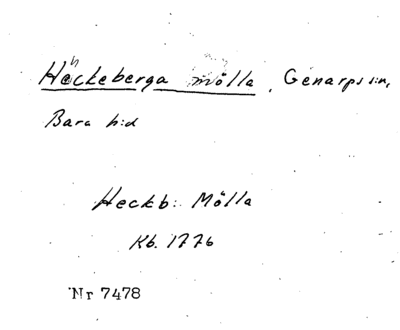 Häckeberga mölla, Genarps sn,
Bara h:d
Heckb: Mölla
Kb. 1776
Nr 7478